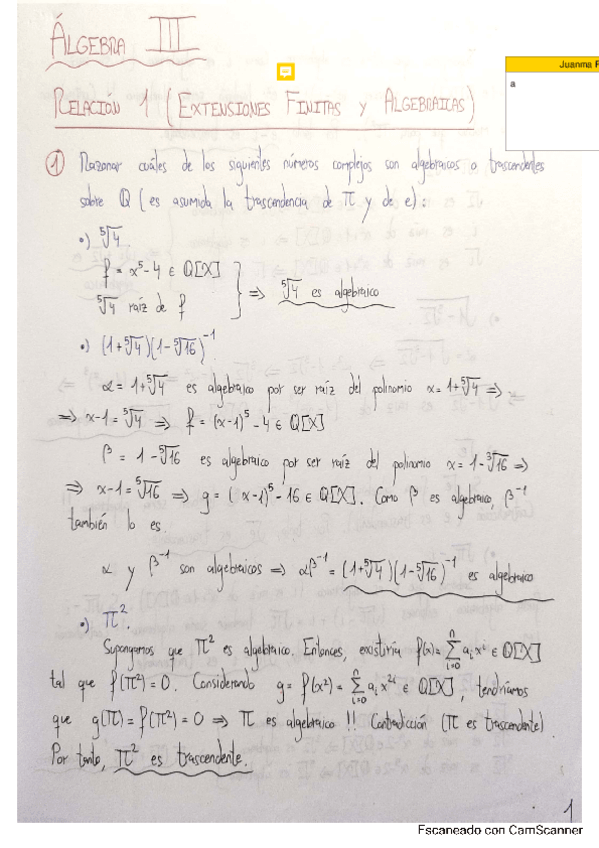 ÁLGEBRA III
Juanma
a
RELACIÓN 1 (EXTENSIONES FINITAS Y ALGEBRAICAS)
① Razonar cuáles de los siguientes números complejos son algebraicos o trascendentes
sobre Q (es asumida la trascendencia de π y de e):
•) ⁵√4.
f = x⁵-4 ∈ Q[X]
⁵√4 raíz de f } ⇒ ⁵√4 es algebraico
•) (1+⁵√4)(1-⁵√16)⁻¹
α = 1+⁵√4 es algebraico por ser raíz del polinomio x = 1+⁵√4 ⇒
⇒ x-1 = ⁵√4 ⇒ f = (x-1)⁵-4 ∈ Q[X]
β = 1-⁵√16 es algebraico por ser raíz del polinomio x = 1-³√16 ⇒
⇒ x-1 = ⁵√16 ⇒ g = (x-1)⁵-16 ∈ Q[X]. Como β es algebraico, β⁻¹
también lo es.
α y β⁻¹ son algebraicos ⇒ αβ⁻¹ = (1+⁵√4)(1-⁵√16)⁻¹ es algebraico
•) π².
Supongamos que π² es algebraico. Entonces, existiría f(x) = Σⁿᵢ₌₀ aᵢxⁱ ∈ Q[X]
tal que f(π²) = 0. Considerando g = f(x²) = Σⁿᵢ₌₀ aᵢx²ⁱ ∈ Q[X], tendríamos
que g(π) = f(π²) = 0 ⇒ π es algebraico !! Contradicción (π es trascendente).
Por tanto, π² es trascendente.
1
Escaneado con CamScanner